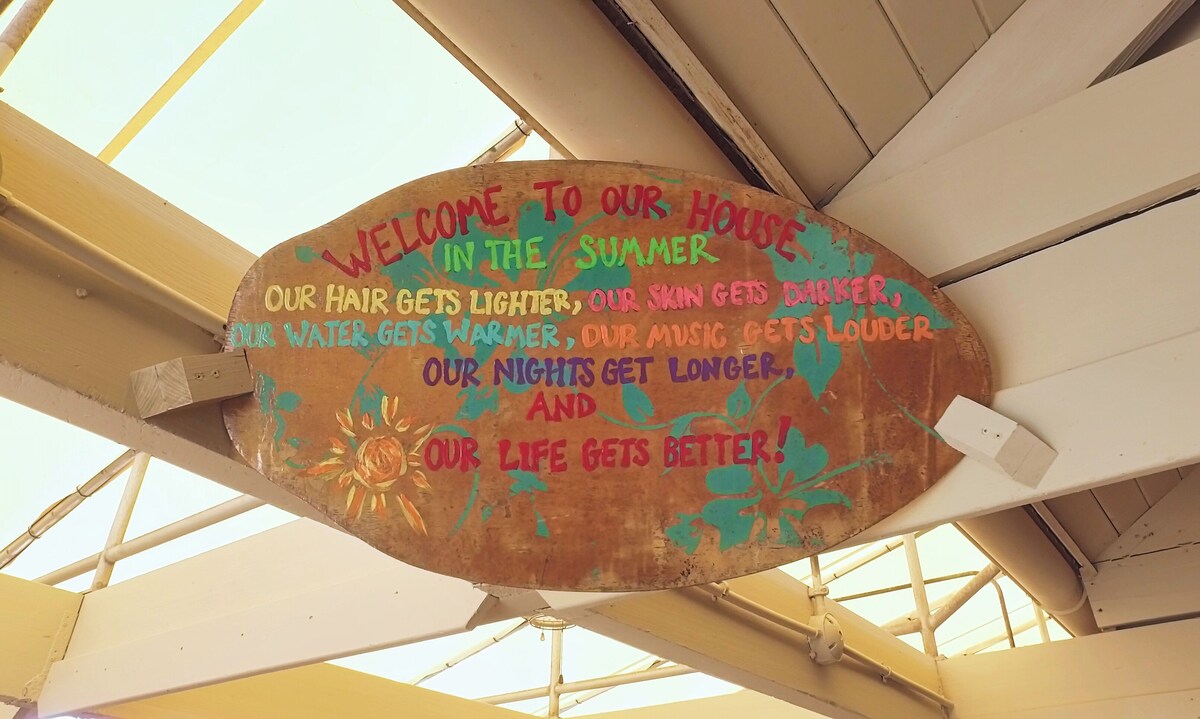 WELCOME TO OUR HOUSE
IN THE SUMMER
OUR HAIR GETS LIGHTER, OUR SKIN GETS DARKER,
OUR WATER GETS WARMER, OUR MUSIC GETS LOUDER
OUR NIGHTS GET LONGER,
AND
OUR LIFE GETS BETTER!